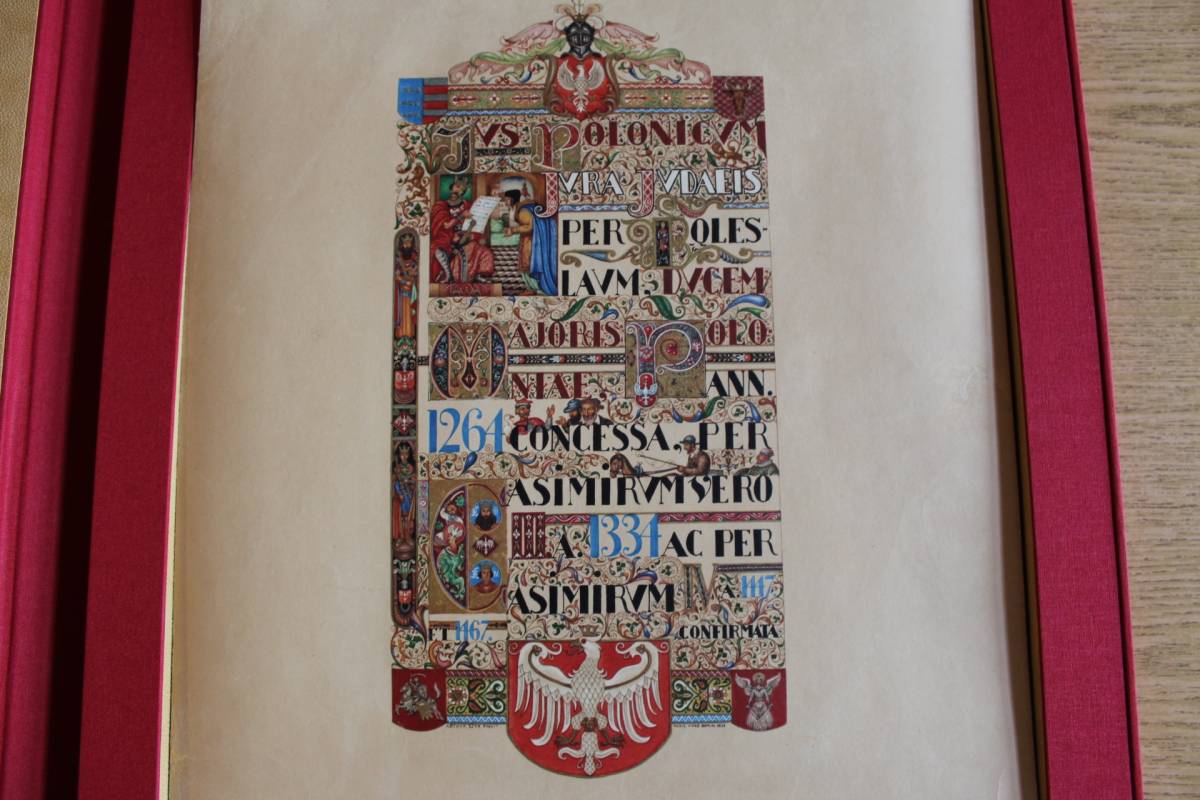 JVS POLONICVM
JVRA JVDAEIS
PER BOLES-
LAVM, DVCEM
MAJORIS POLO:
NIAE ANN.
1264 CONCESSA, PER
CASIMIRVM VERO
III A. 1334 AC PER
CASIMIRVM IV A. 1447.
ET 1467. CONFIRMATA